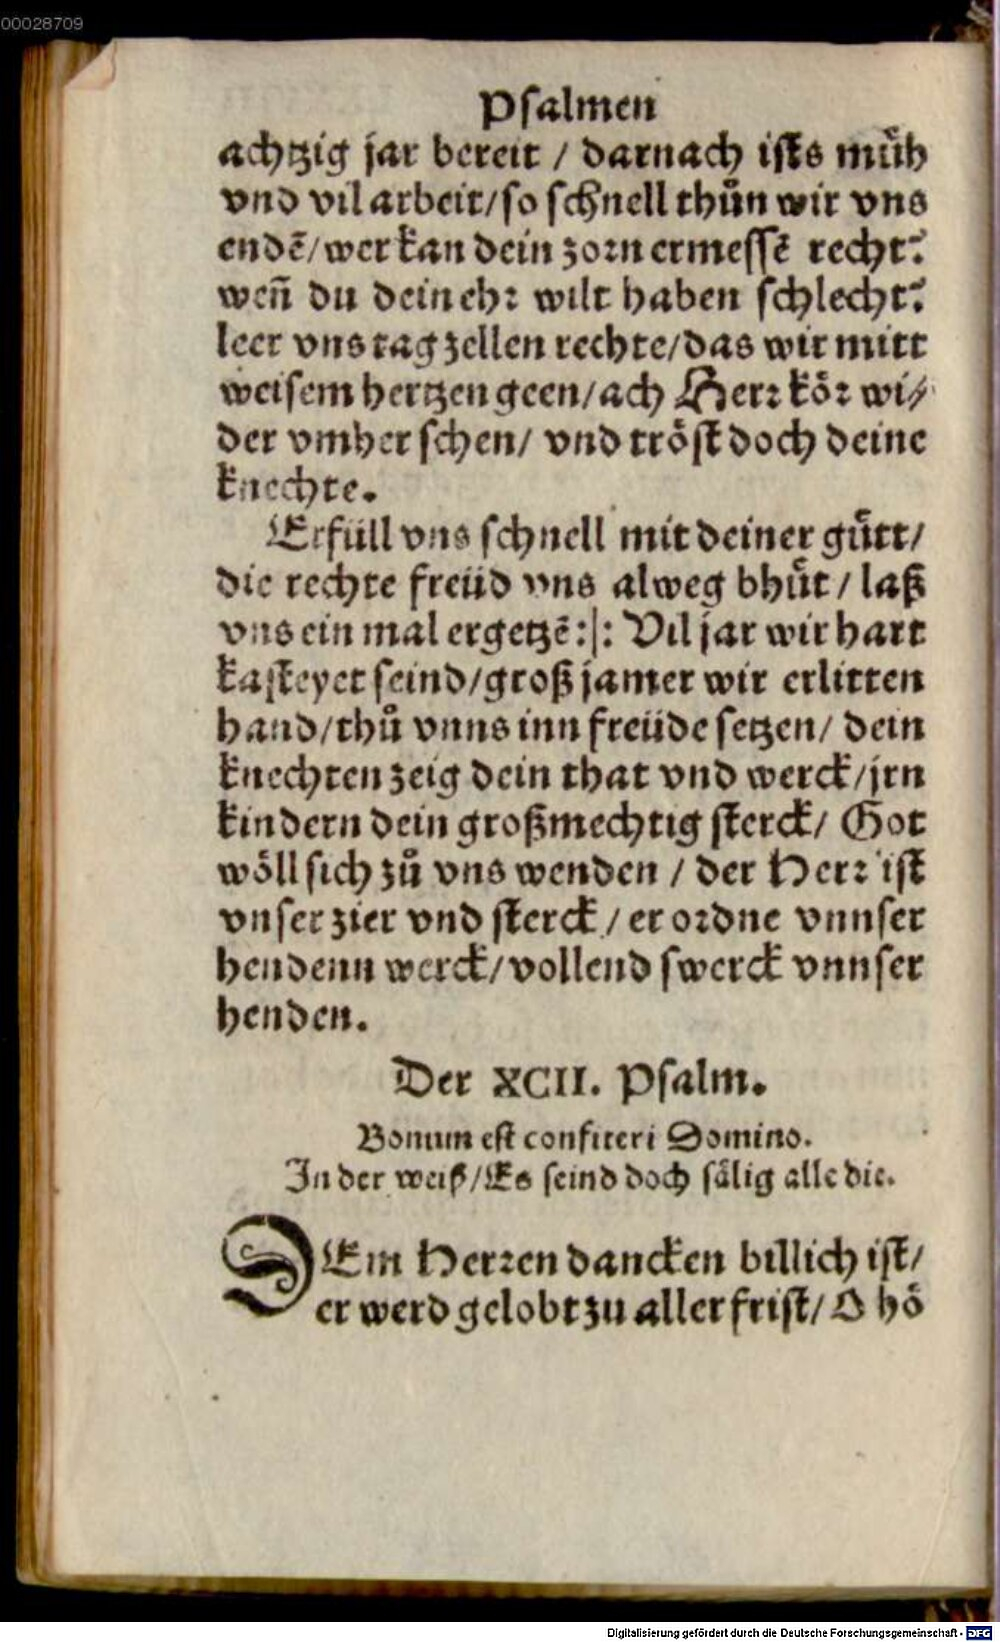 00028709
Psalmen
achtzig jar bereit / darnach ists müh
vnd vil arbeit/so schnell thůn wir vns
endē/wer kan dein zorn ermessē recht?
weñ du dein ehr wilt haben schlecht?
leer vns tag zellen rechte/das wir mitt
weisem hertzen geen/ach Herr kör wi⸗
der vmher sehen/ vnd tröst doch deine
knechte.
Erfüll vns schnell mit deiner gütt/
die rechte freüd vns alweg bhüt / laß
vns ein mal ergetzē:|: Vil jar wir hart
kasteyet seind/groß jamer wir erlitten
hand/thů vnns inn freüde setzen/ dein
knechten zeig dein that vnd werck/jrn
kindern dein großmechtig sterck/ Got
wöll sich zů vns wenden / der Herr ist
vnser zier vnd sterck / er ordne vnnser
hendenn werck/vollend swerck vnnser
henden.
Der XCII. Psalm.
Bonum est confiteri Domino.
In der weiß/Es seind doch sälig alle die.
DEm Herren dancken billich ist/
er werd gelobt zu aller frist/ O hö
Digitalisierung gefördert durch die Deutsche Forschungsgemeinschaft - DFG